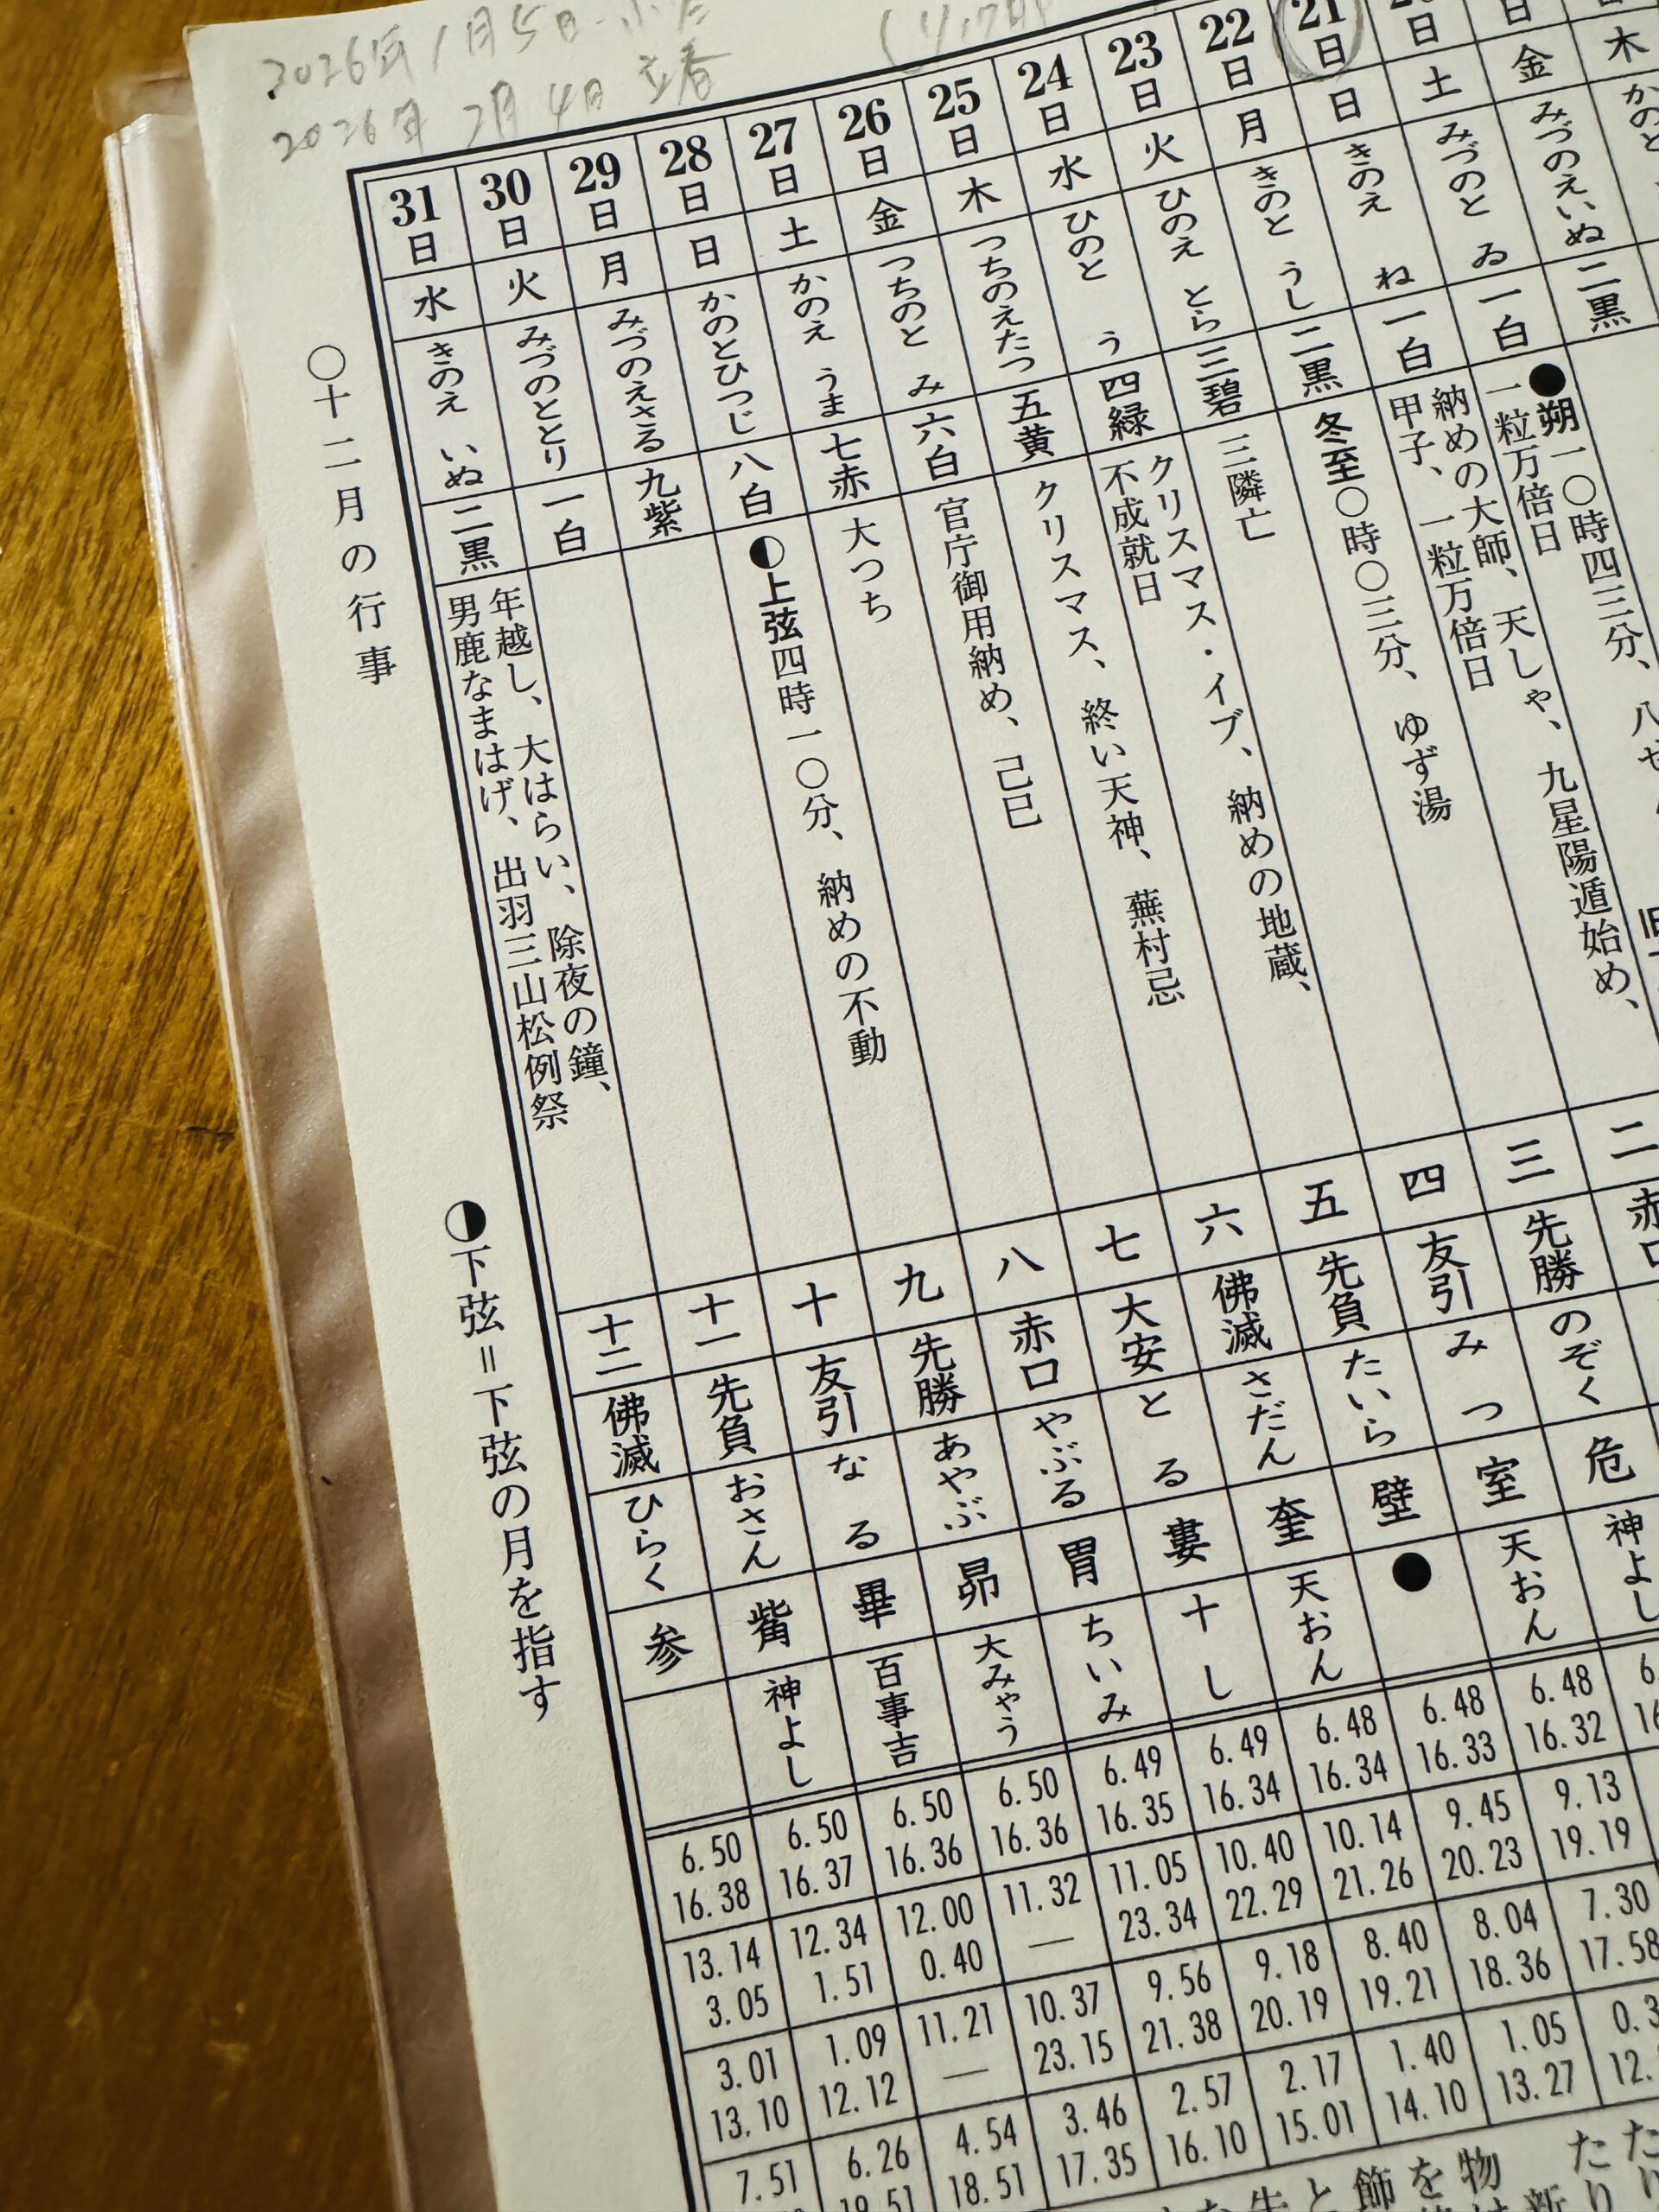 2026年1月5日
2026年 2月 4日 立春
木
かのと
二黒
日
金
みづのえいぬ
一白
●朔一〇時四三分、
一粒万倍日
二
赤口
日
土
みづのと ゐ
一白
納めの大師、天しゃ、九星陽遁始め、
甲子、一粒万倍日
三
先勝
のぞく
危
神よし
21日
日
きのえ ね
二黒
冬至〇時〇三分、ゆず湯
四
友引
みつ
室
天おん
6.48
16.32
9.13
19.19
7.30
17.58
22日
月
きのと うし
三碧
三隣亡
五
先負
たいら
壁
●
6.48
16.33
9.45
20.23
8.04
18.36
1.05
13.27
23日
火
ひのえ とら
四緑
クリスマス・イブ、納めの地蔵、
不成就日
六
佛滅
さだん
奎
天おん
6.48
16.34
10.14
21.26
8.40
19.21
1.40
14.10
24日
水
ひのと う
五黄
クリスマス、終い天神、蕪村忌
七
大安
とる
婁
十し
6.49
16.34
10.40
22.29
9.18
20.19
2.17
15.01
25日
木
つちのえたつ
六白
官庁御用納め、己巳
八
赤口
やぶる
胃
ちいみ
6.49
16.35
11.05
23.34
9.56
21.38
2.57
16.10
26日
金
つちのと み
七赤
大つち
九
先勝
あやぶ
昴
大みゃう
6.50
16.36
11.32
—
10.37
23.15
3.46
17.35
27日
土
かのえ うま
八白
◐上弦四時一〇分、納めの不動
十
友引
なる
畢
百事吉
6.50
16.36
12.00
0.40
11.21
—
4.54
18.51
28日
日
かのとひつじ
九紫
十一
先負
おさん
觜
神よし
6.50
16.37
12.34
1.51
1.09
12.12
6.26
19.51
29日
月
みづのえさる
一白
30日
火
みづのととり
二黒
年越し、大はらい、除夜の鐘、
男鹿なまはげ、出羽三山松例祭
31日
水
きのえ いぬ
十二
佛滅
ひらく
参
6.50
16.38
13.14
3.05
3.01
13.10
7.51
〇十二月の行事
◑下弦＝下弦の月を指す